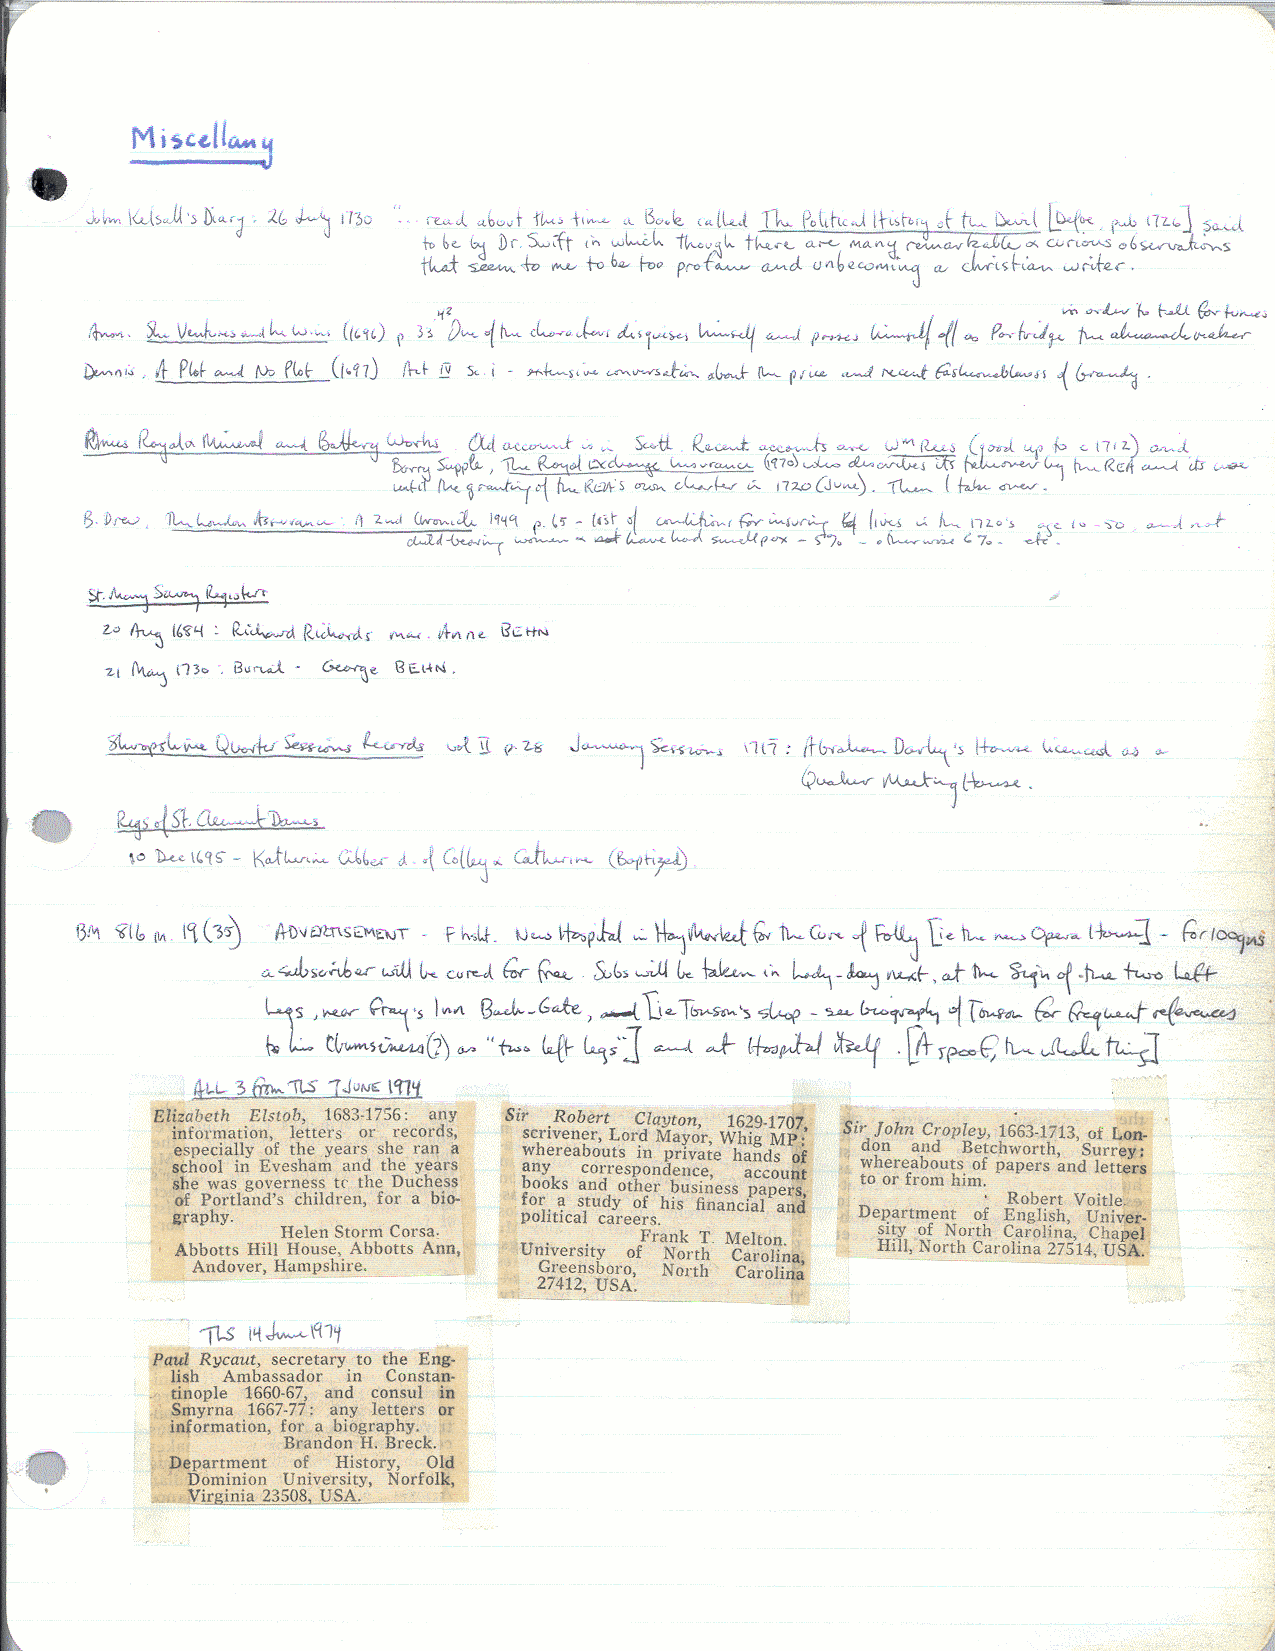 Miscellany
John Kelsall's Diary: 26 July 1730 "... read about this time a Book called The Political History of the Devil [Defoe, pub 1726] said
to be by Dr. Swift in which though there are many remarkable & curious observations
that seem to me to be too profane and unbecoming a christian writer.
in order to tell fortunes
Anon. She Ventures and he Wins (1696) p 33 42 One of the characters disguises himself and passes himself off as Partridge the almanack maker
Dennis, A Plot and No Plot (1697) Act IV Sc. i - extensive conversation about the price and recent fashionableness of brandy.
Mines Royal & Mineral and Battery Works. Old account is in Scott. Recent accounts are Wm Rees (good up to c 1712) and
Barry Supple, The Royal Exchange Insurance (1970) who describes its takeover by the REA and its use
until the granting of the REA's own charter in 1720 (June). Then I take over.
B. Drew, The London Assurance: A 2nd Chronicle 1949 p. 65 - list of conditions for insuring lives in the 1720's age 10-50, and not
child-bearing women & have had smallpox - 5% - otherwise 6% - etc.
St. Mary Savoy Registers
20 Aug 1684: Richard Richards mar. Anne BEHN
21 May 1730: Burial - George BEHN.
Shropshire Quarter Sessions Records vol II p. 28 January Sessions 1717: Abraham Darby's House licenced as a
Quaker Meeting House.
Regs of St. Clement Danes
10 Dec 1695 - Katherine Cibber d. of Colley & Catherine (Baptized)
BM 816 m. 19 (35) ADVERTISEMENT - F hsht. New Hospital in Hay Market for the Cure of Folly [ie the new Opera House] - for 100 gns
a subscriber will be cured for free. Subs will be taken in Lady-day next, at the Sign of the two Left
Legs, near Gray's Inn Back-Gate, and [ie Tonson's shop - see biography of Tonson for frequent references
to his Clumsiness(?) as "two left legs"] and at Hospital itself. [A spoof, the whole thing]
ALL 3 from TLS 7 JUNE 1974
Elizabeth Elstob, 1683-1756: any
information, letters or records,
especially of the years she ran a
school in Evesham and the years
she was governess to the Duchess
of Portland's children, for a bio-
graphy.
Helen Storm Corsa.
Abbotts Hill House, Abbotts Ann,
Andover, Hampshire.
Sir Robert Clayton, 1629-1707,
scrivener, Lord Mayor, Whig MP:
whereabouts in private hands of
any correspondence, account
books and other business papers,
for a study of his financial and
political careers.
Frank T. Melton.
University of North Carolina,
Greensboro, North Carolina
27412, USA.
Sir John Cropley, 1663-1713, of Lon-
don and Betchworth, Surrey:
whereabouts of papers and letters
to or from him.
Robert Voitle.
Department of English, Univer-
sity of North Carolina, Chapel
Hill, North Carolina 27514, USA.
TLS 14 June 1974
Paul Rycaut, secretary to the Eng-
lish Ambassador in Constan-
tinople 1660-67, and consul in
Smyrna 1667-77: any letters or
information, for a biography.
Brandon H. Breck.
Department of History, Old
Dominion University, Norfolk,
Virginia 23508, USA.